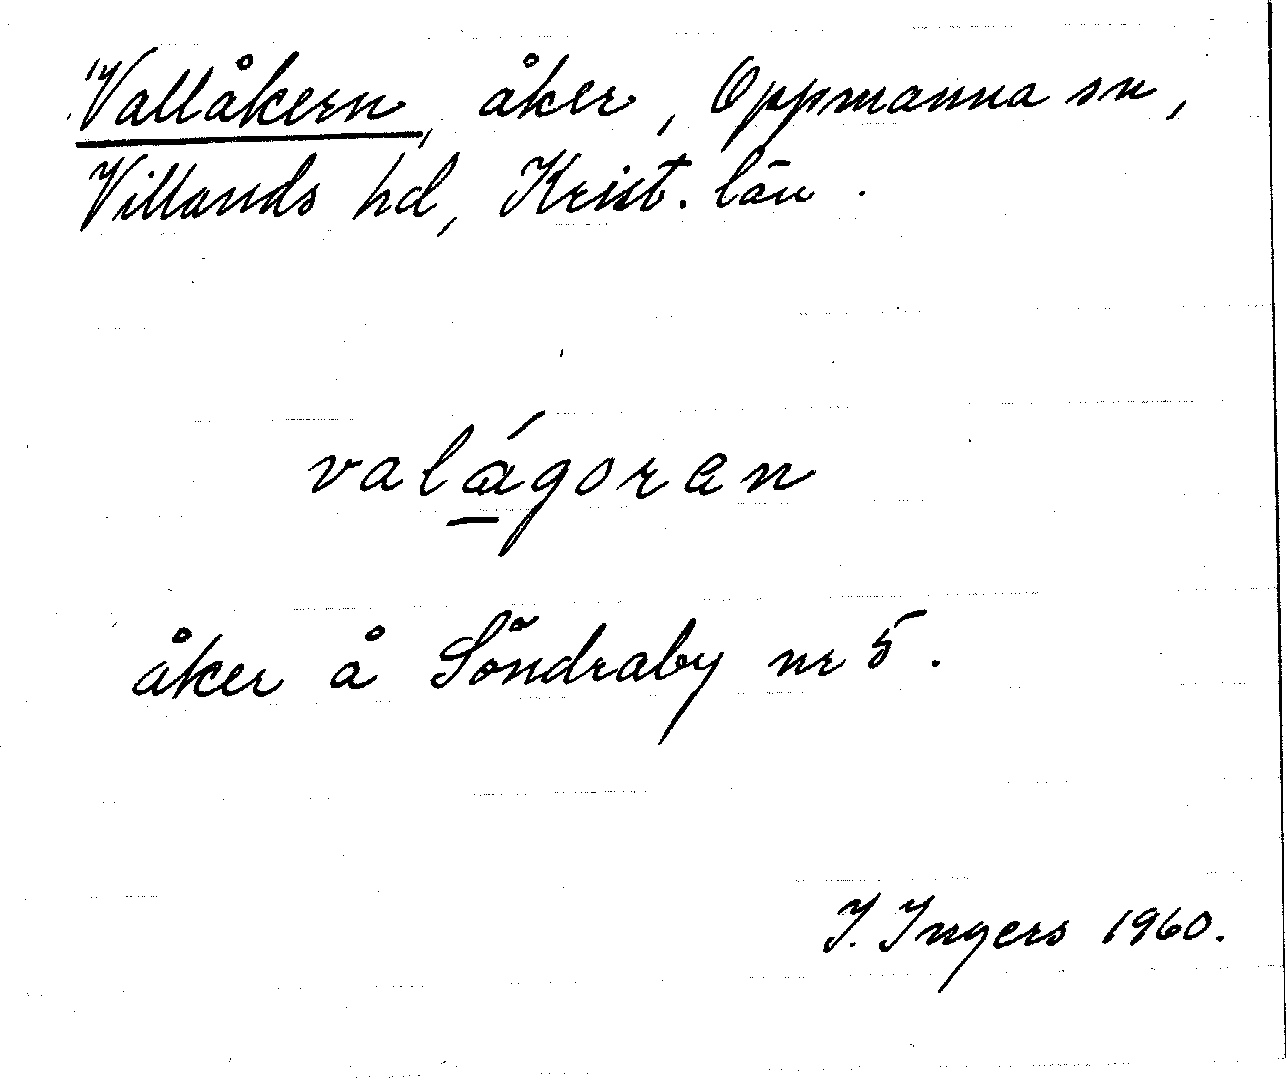 Vallåkern, åker, Oppmanna sn,
Villands hd, Krist. län.
valágoren
åker å Söndraby nr 5.
I. Ingers 1960.